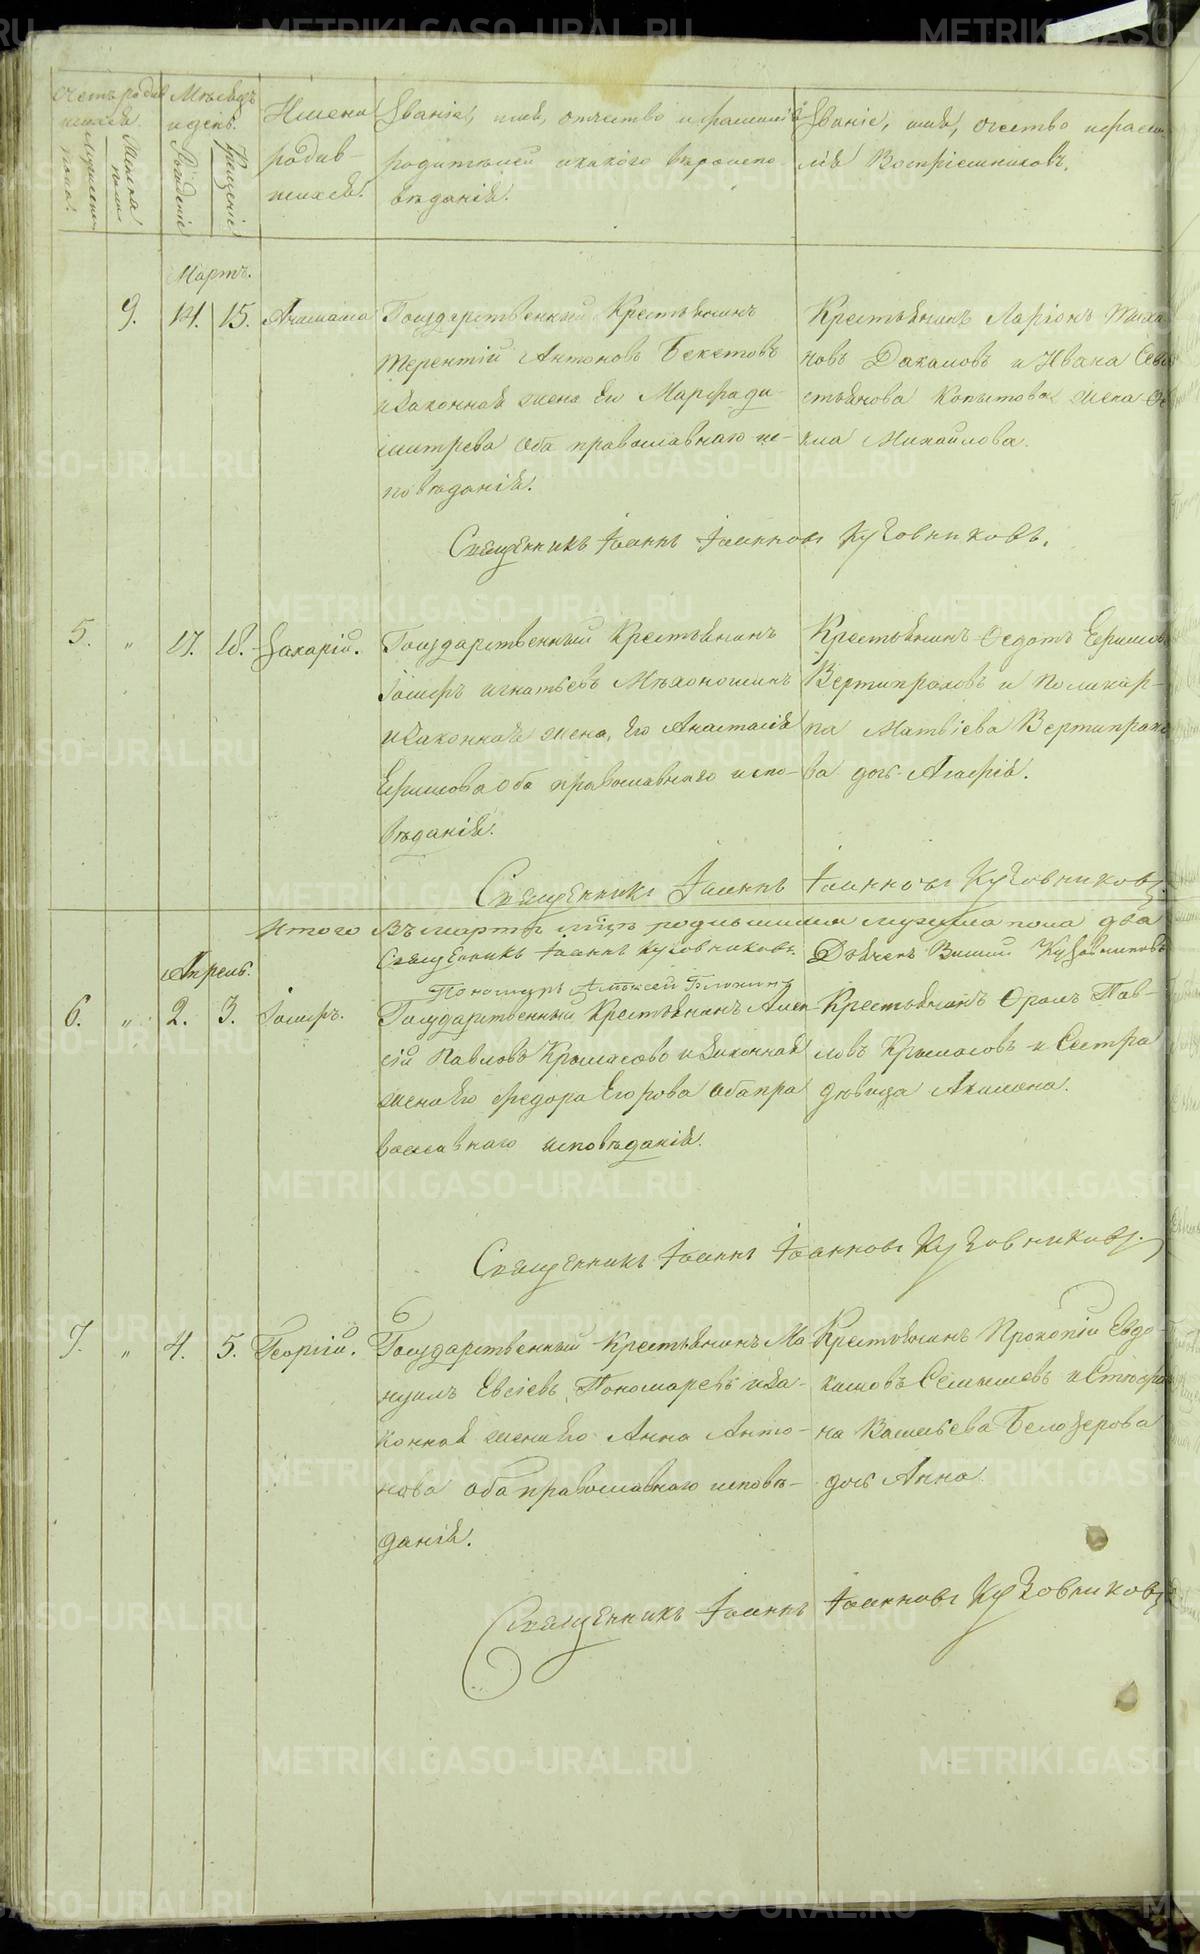 Счетъ родив
шихся.
Мужескаго пола.
Женска
Мѣсяцъ
и день.
Рожденіе
Крещеніе
Имена
родив-
шихся.
Званіе, имя, отчество и фамилія
родителей и какого вѣроиспо-
вѣданія.
Званіе, имя, отчество и фами
лія Воспріемниковъ.
Мартъ.
9. 14. 15.
Государственный Крестьянинъ
Терентій Антоновъ Бекетовъ
и законная жена Его Марфа Ди-
митрева оба православнаго ис-
повѣданія.
Крестьянинъ Ларіонъ
новъ и Ивана Сева
стьянова Копытова жена
Михайлова.
Священникъ Іоаннъ Іоанновъ Кузовниковъ.
5. " 17. 18. Захарій.
Государственный Крестьянинъ
Іосифъ Игнатьевъ Мѣхоношинъ
и законная жена, Его Анастасія
Ефимова оба православнаго испо-
вѣданія.
Крестьянинъ Федотъ Ефимовъ
Вертипраховъ и Поликар-
па Матвіева Вертипрахо
ва дочь Агафія.
Священникъ Іоаннъ Іоанновъ Кузовниковъ.
Итого въ мартѣ мцѣ родившихся мужеска пола два
Священникъ Іоаннъ Кузовниковъ.
Дьячекъ Кузовниковъ
Пономарь Алексей
Апрель.
6. " 2. 3. Іосифъ.
Государственный Крестьянинъ Алек
сій Павловъ Крымасовъ и законная
жена Его Федора Егорова оба пра
вославнаго исповѣданія.
Крестьянинъ Фролъ Пав-
ловъ Крымасовъ и Сестра
дѣвица Акилина.
Священникъ Іоаннъ Іоанновъ Кузовниковъ.
6
7. " 4. 5. Георгій.
Государственный Крестьянинъ Ма
нуилъ Евсіевъ Пономаревъ и за-
конная жена Его Анна Анто-
нова оба православнаго исповѣ-
данія.
Крестьянинъ Прокопій Евдо-
кимовъ и Стефа
на Васильева Белозерова
дочь Анна.
Священникъ Іоаннъ Іоанновъ Кузовниковъ
METRIKI.GASO-URAL.RU